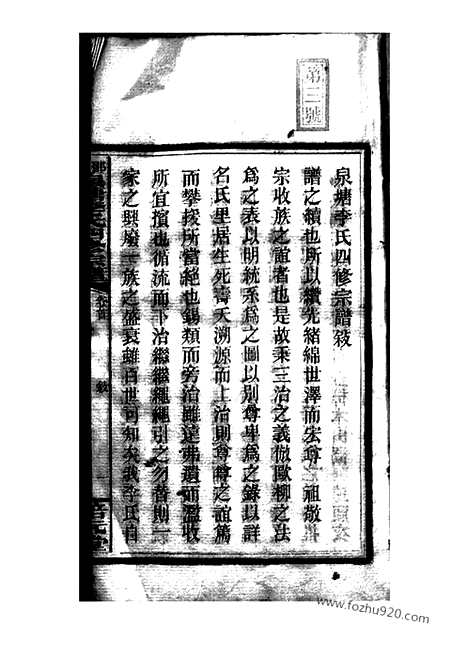 第三號
泉塘李氏四修宗譜敘
譜之續也所以纘先緒綿世澤而宏尊祖敬
宗收族之誼者也是故乘三治之義倣歐柳之法
為之表以明統系為之圖以別尊卑為之錄以詳
名氏里居生死壽夭溯源而上治則尊尊之誼篤
而攀援所當絕也錫類而旁治雖遠弗遺而濫收
所宜擯也循流而下治繼繼繩繩引之勿替則一
家之興廢一族之盛衰雖百世可知矣我李氏自
卷首
敘
www.fozhu920.com